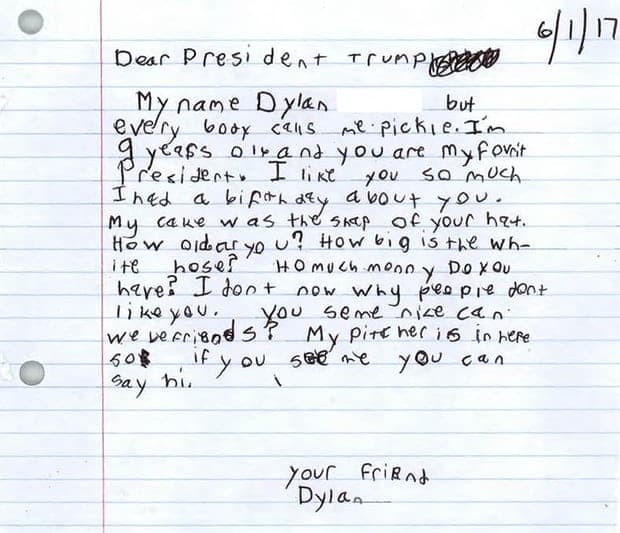 6/1/17
Dear President Trump
My name Dylan but
every body calls me pickle. I'm
9 years old and you are my fovrit
President. I like you so much
I had a birthday about you.
My cake was the shap of your hat.
How old ar yo u? How big is the wh-
ite hose? Ho much monny Do you
have? I dont now why people dont
like you. You seme nice can
we be friends? My pitcher is in here
so if you see me you can
say hi.
your friend
Dylan